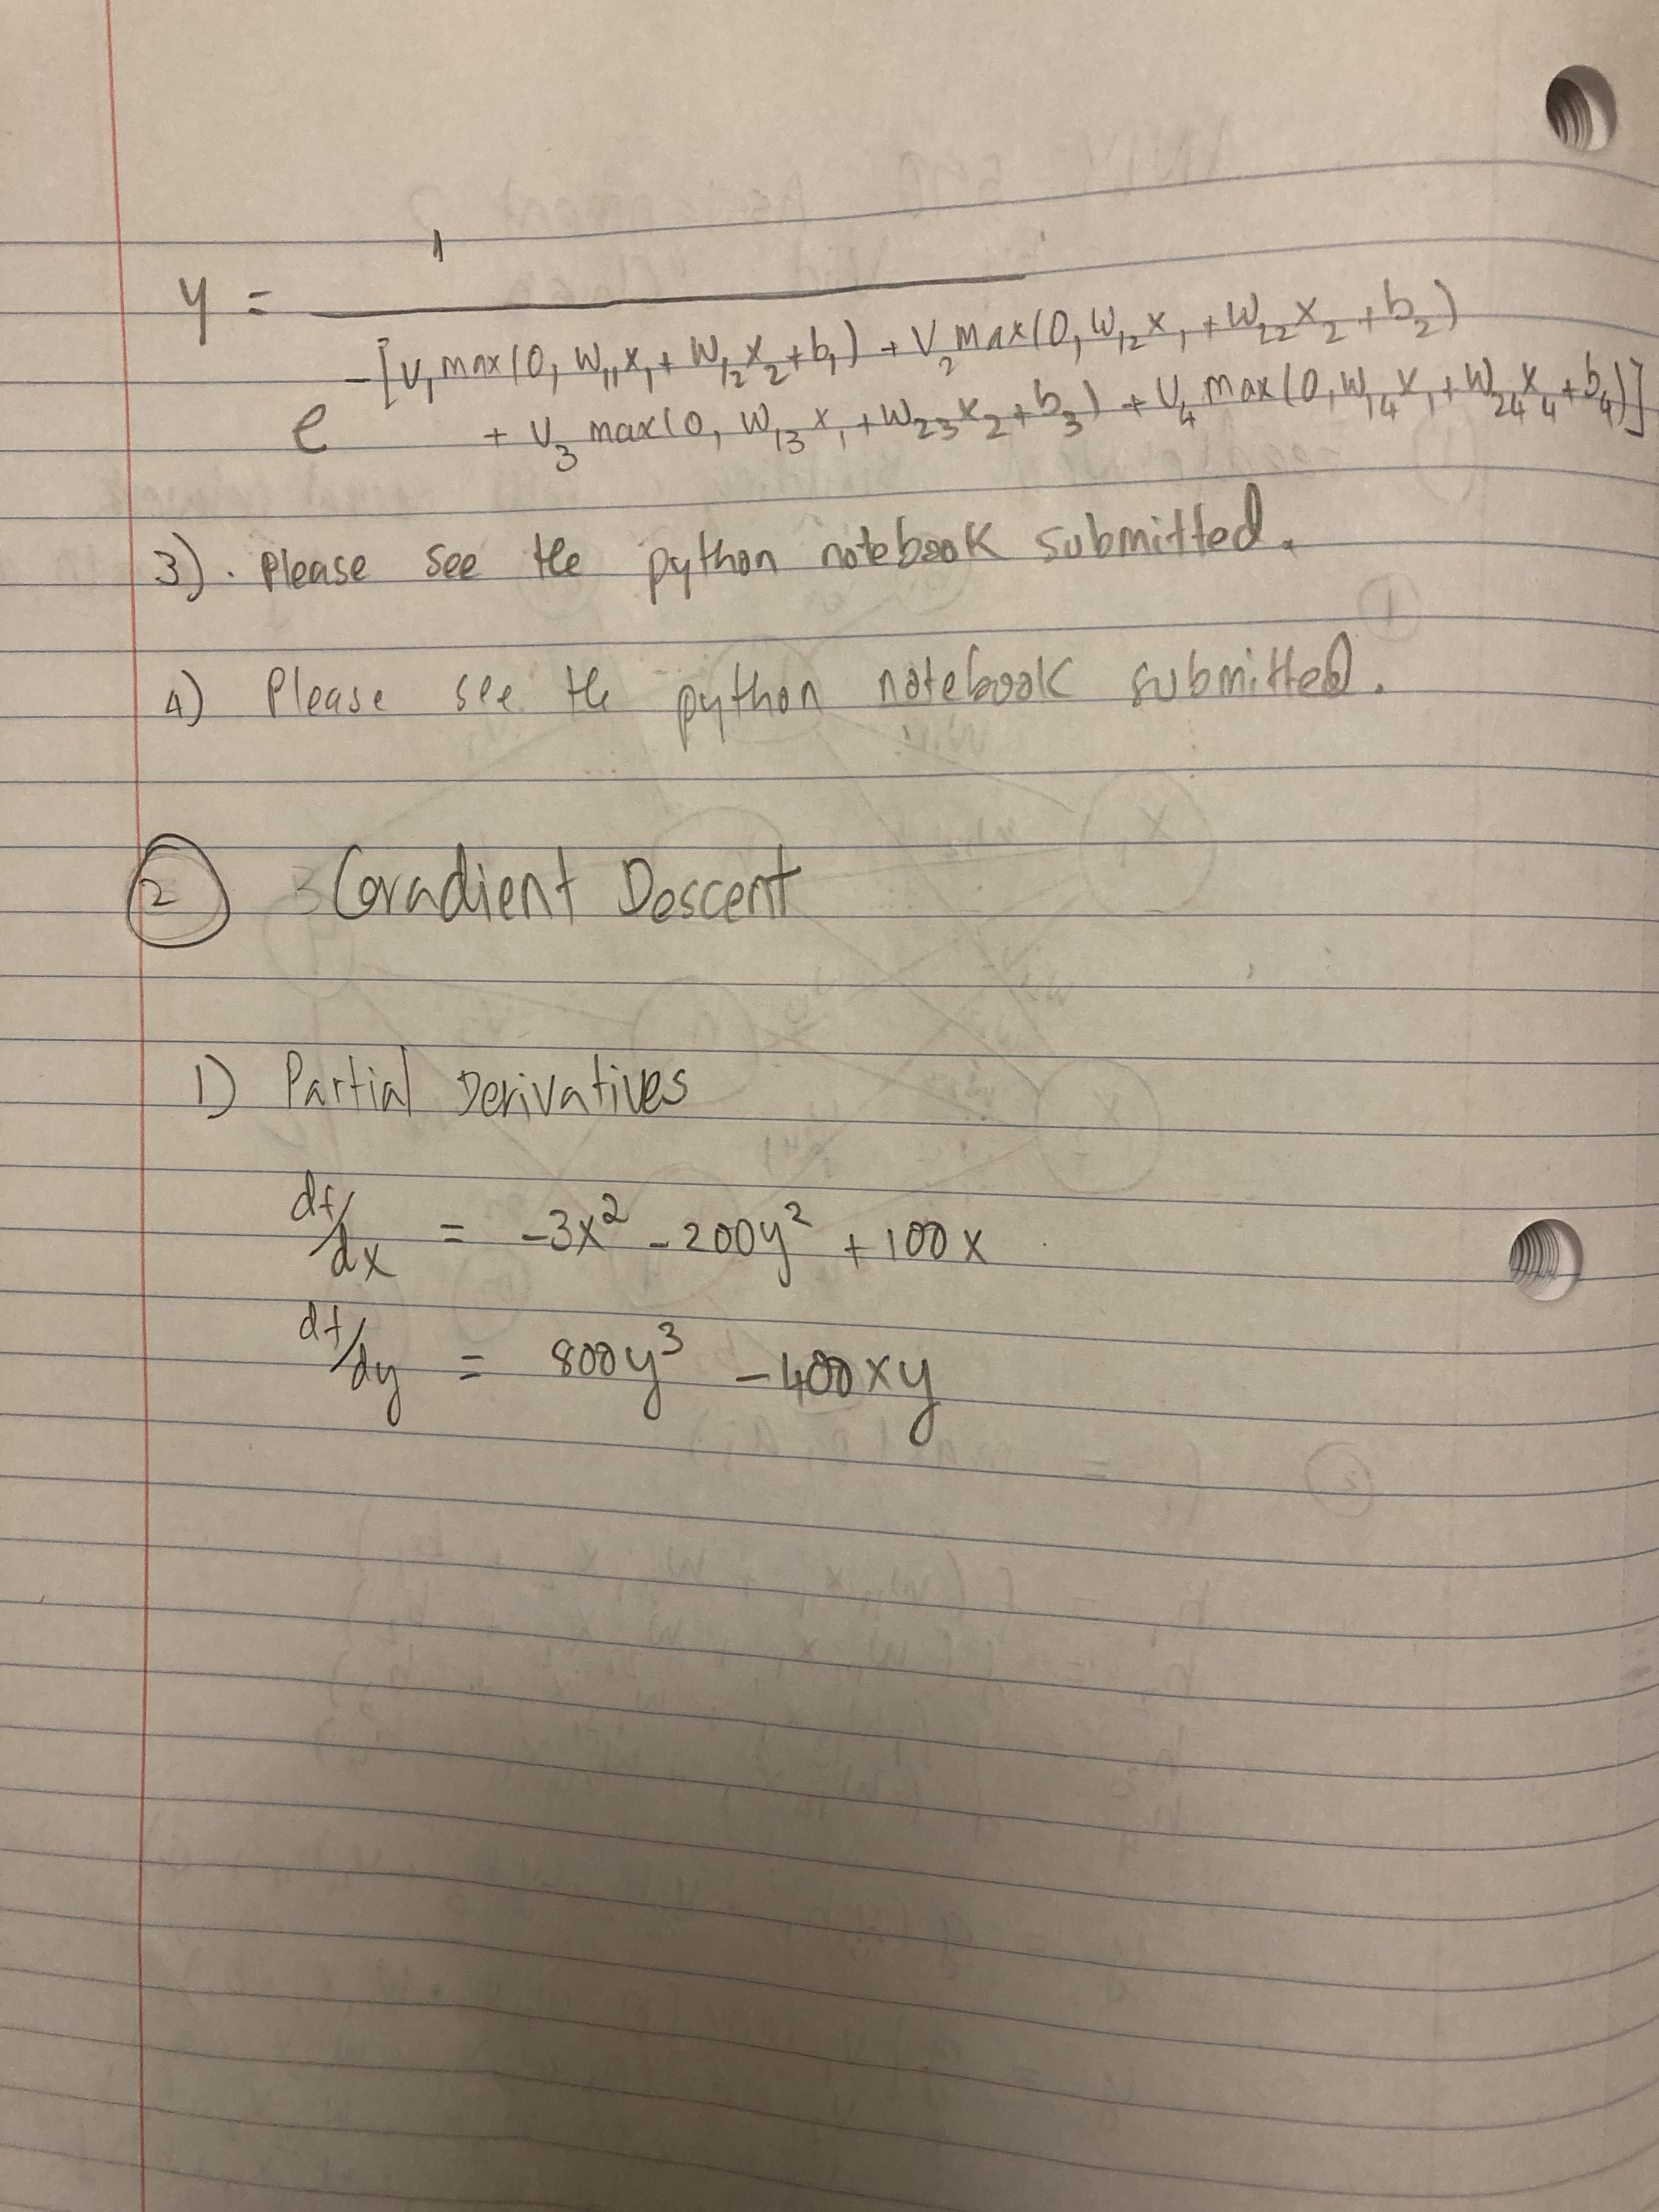 y = 1
-[v₁max(0, w₁₁x₁ + w₁₂x₂ + b₁) + v₂max(0, w₁₂x₁ + w₂₂x₂ + b₂)
e + v₃ max(0, w₁₃x₁ + w₂₃x₂ + b₃) + v₄ max(0, w₁₄x₁ + w₂₄x₄ + b₄)]
3). Please see the python notebook submitted.
4) Please see the python notebook submitted.
2 Gradient Descent
1) Partial Derivatives
df/dx = -3x² - 200y² + 100x
df/dy = 800y³ - 400xy